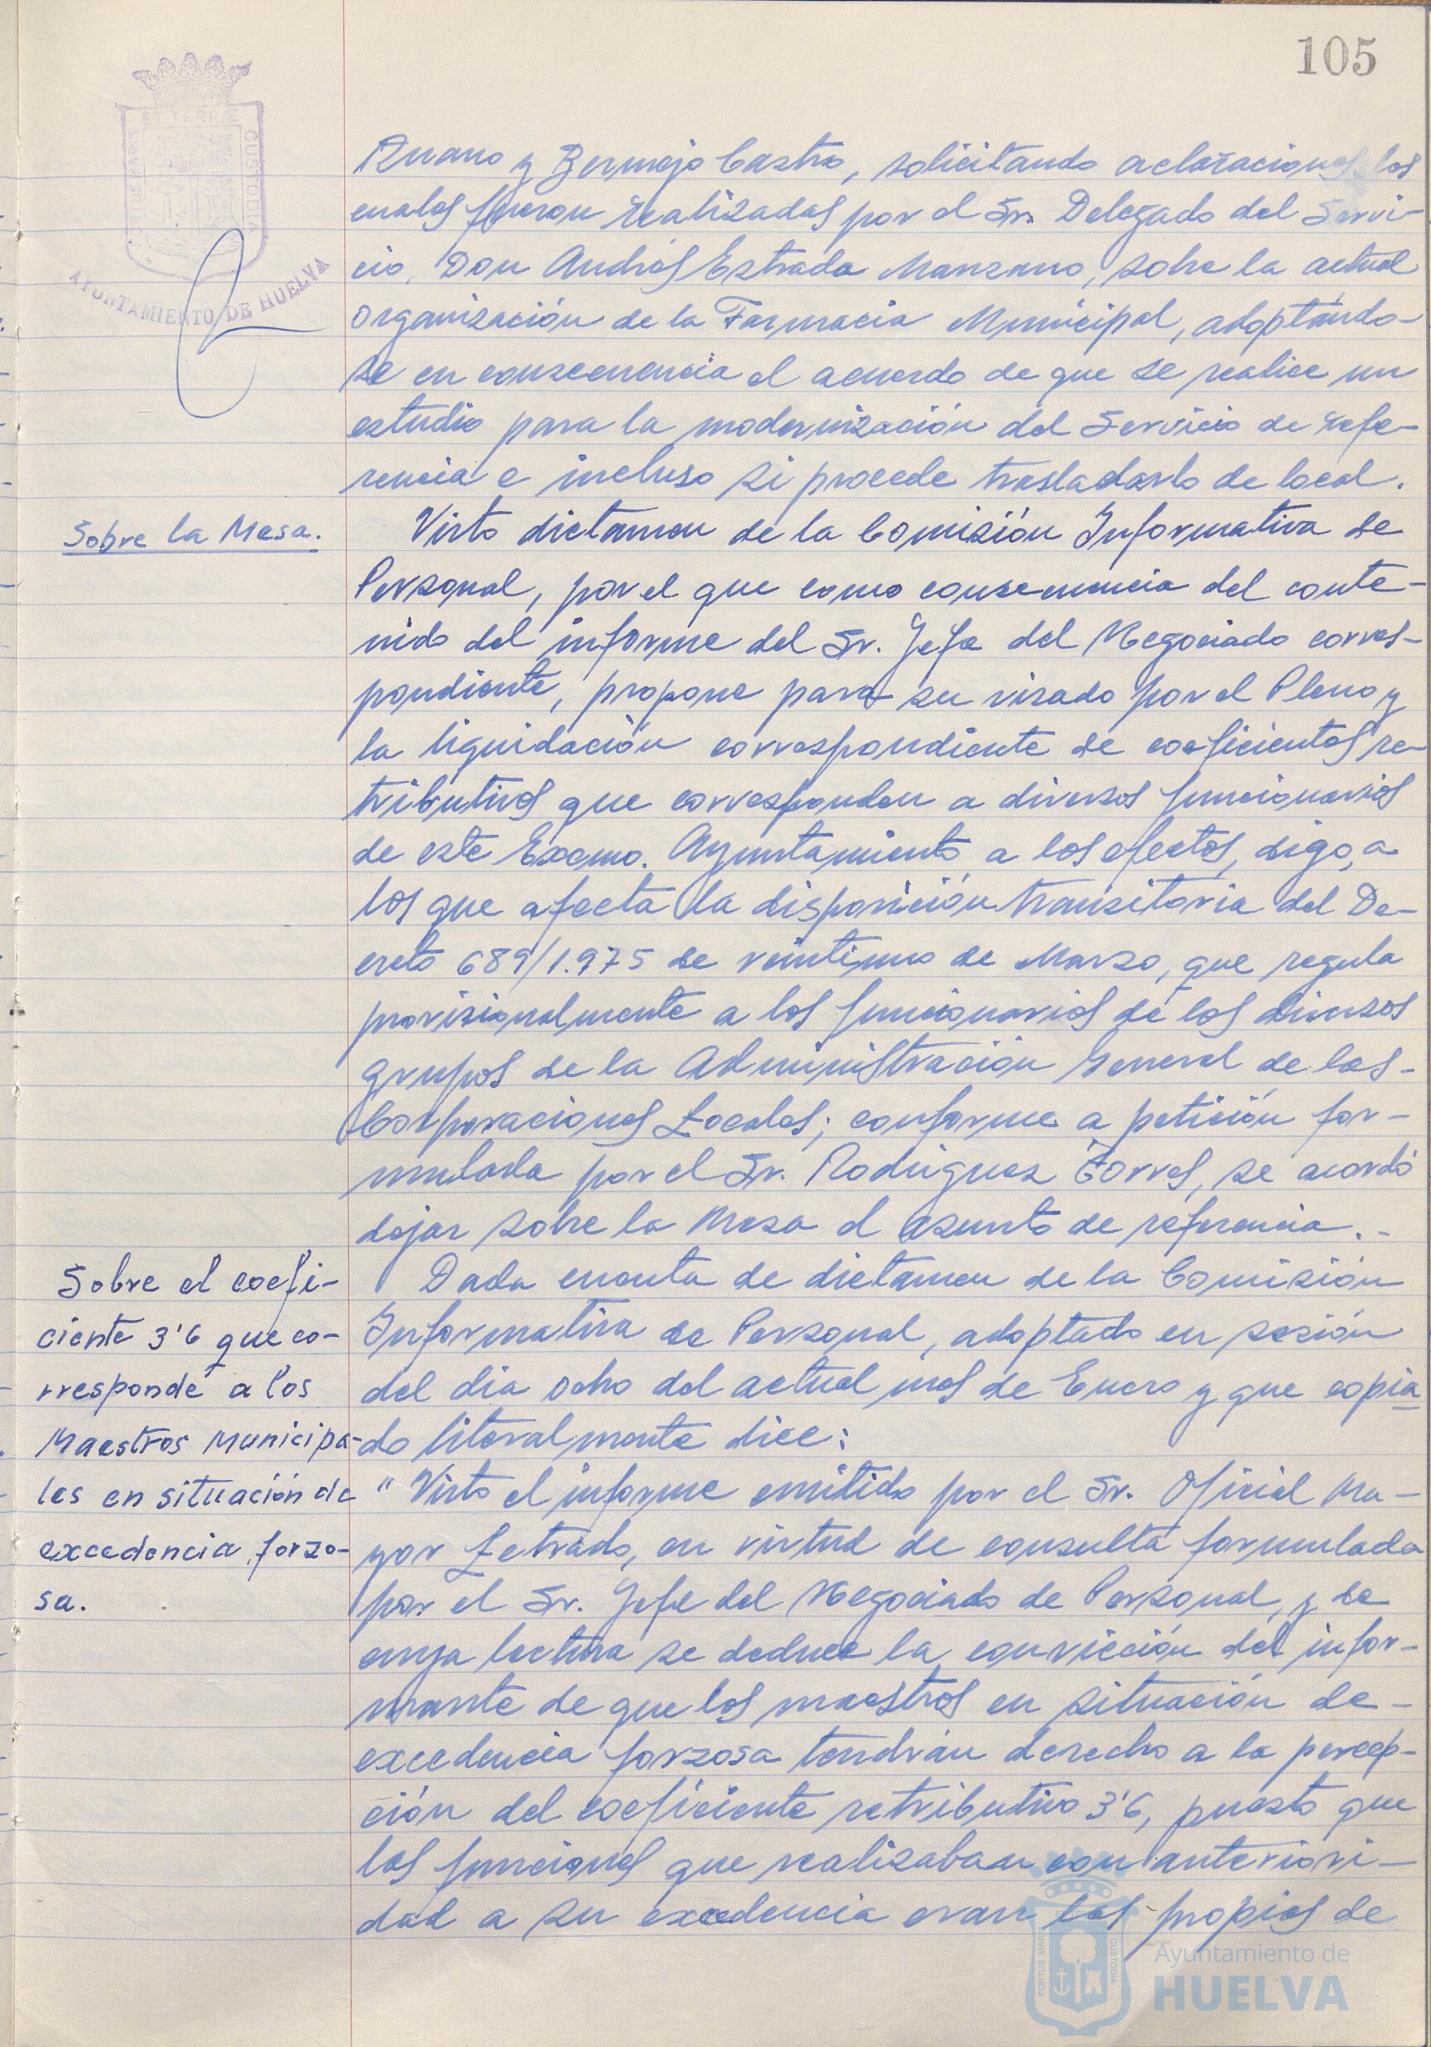 105
PORTUS MARIS ET TERRÆ CUSTODIA
AYUNTAMIENTO DE HUELVA
Ruano y Bermejo Castro, solicitando aclaraciones, las
cuales fueron realizadas por el Sr. Delegado del Servi-
cio, Don Andrés Estrada Manzano, sobre la actual
organización de la Farmacia Municipal, adoptándo-
se en consecuencia el acuerdo de que se realice un
estudio para la modernización del Servicio de refe-
rencia e incluso si procede trasladarlo de local.
Sobre la Mesa.
Visto dictamen de la Comisión Informativa de
Personal, por el que como consecuencia del conte-
nido del informe del Sr. Jefe del Negociado corres-
pondiente, propone para su visado por el Pleno y
la liquidación correspondiente de coeficientes re-
tributivos que corresponden a diversos funcionarios
de este Excmo. Ayuntamiento a los efectos, digo, a
los que afecta la disposición transitoria del De-
creto 689/1.975 de veintiuno de Marzo, que regula
provisionalmente a los funcionarios de los diversos
grupos de la Administración General de las-
Corporaciones Locales; conforme a petición for-
mulada por el Sr. Rodriguez Torres, se acordó
dejar sobre la Mesa el asunto de referencia.-
Sobre el coefi-
ciente 3'6 que co-
rresponde a los
Maestros Municipa-
les en situación de
excedencia forzo-
sa.
Dada cuenta de dictamen de la Comisión
Informativa de Personal, adoptado en sesión
del dia ocho del actual mes de Enero y que copia
do literalmente dice:
"Visto el informe emitido por el Sr. Oficial Ma-
yor Letrado, en virtud de consulta formulada
por el Sr. Jefe del Negociado de Personal, y de
cuya lectura se deduce la convicción del infor-
mante de que los maestros en situación de-
excedencia forzosa tendrán derecho a la percep-
ción del coeficiente retributivo 3'6, puesto que
las funciones que realizaban con anteriori-
dad a su excedencia eran las propias de
PORTUS MARIS CUSTODIA
Ayuntamiento de
HUELVA